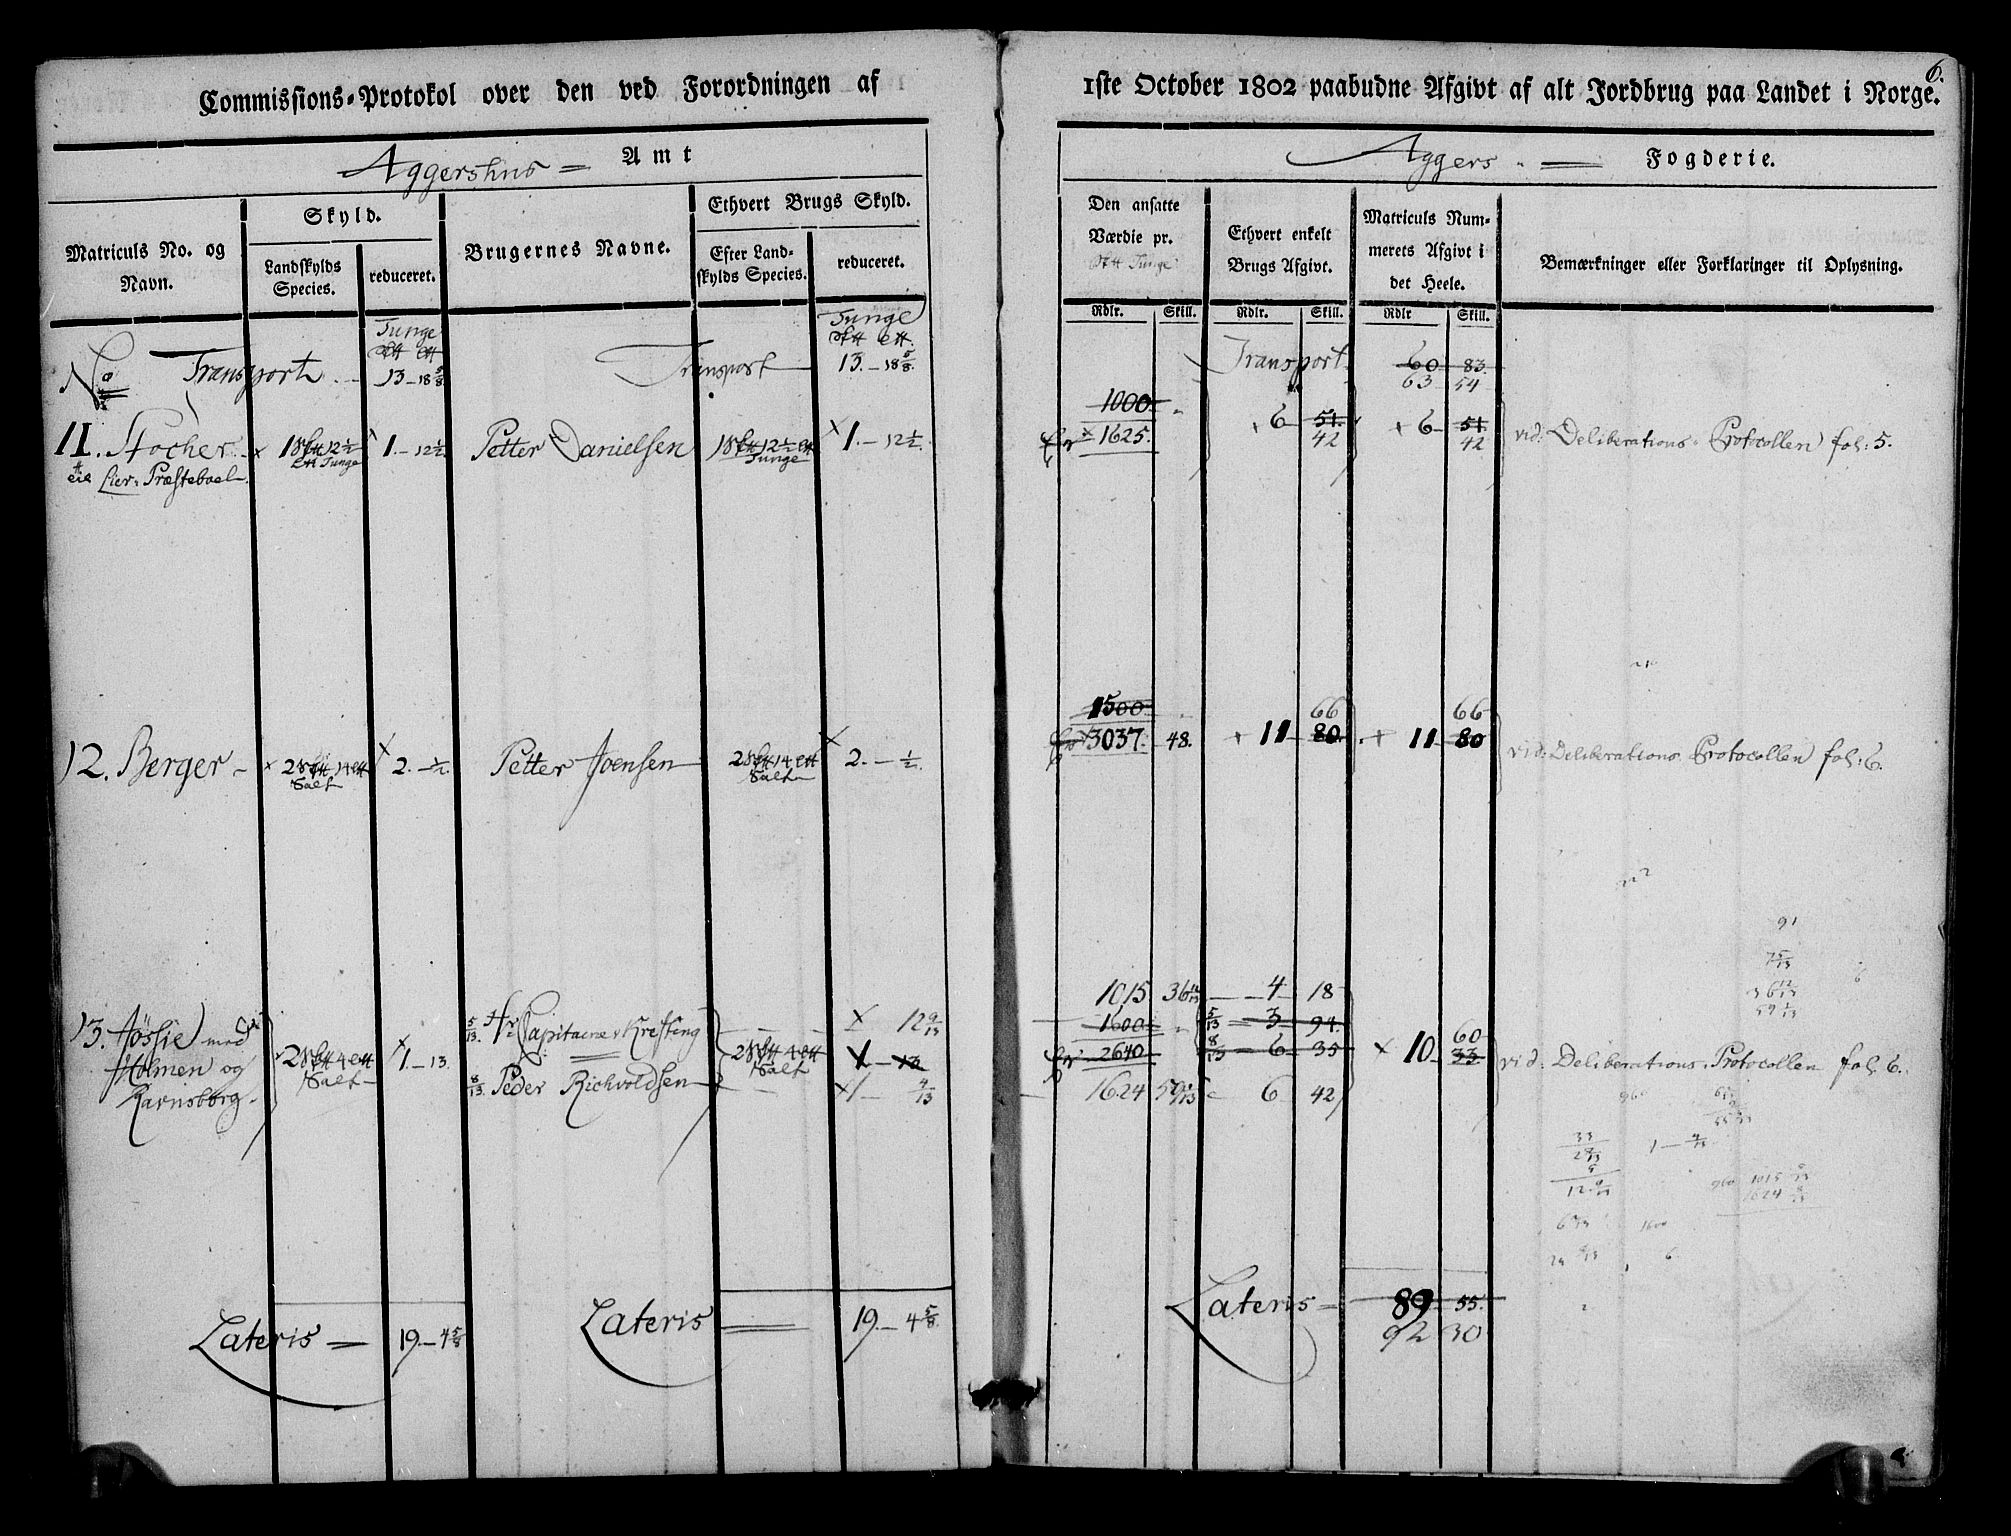 Commissions-Protokol over den ved Forordningen af
Aggershus = Amt
Matriculs No. og
Navn.
Skyld.
Landskylds
Species.
reduceret.
Brugernes Navne.
Ethvert Brugs Skyld.
Efter Land-
skylds Species.
reduceret.
Tunge
Tunge
No Transport 13 - 18 5/8 Transport 13. - 18 5/8.
11. Stocher 12 1/2 1. - 12 1/2 Petter Danielsen 12 1/2 1. - 12 1/2.
Tunge Tunge
Lier-Præsteboel
12. Berger - 2 14 2. - 1/2. Petter Joensen 2 14 2. - 1/2.
Salt Salt
13. Høslie med 5/13. Hr Capitaine Krefting 12 9/13
Holmen og 2 4 1. - 13. 2 4 1 - 13
Salt Salt
Ravnsborg. 8/13. Peder Richvoldsen 1 - 4/13
Lateris = 19. - 4 5/8 Lateris 19. - 4 5/8.
6.
1ste October 1802 paabudne Afgivt af alt Jordbrug paa Landet i Norge.
Aggers = Fogderie.
Den ansatte
Værdie pr.
Tunge
Ethvert enkelt
Brugs Afgivt.
Matriculs Num-
merets Afgivt i
det Heele.
Bemærkninger eller Forklaringer til Oplysning.
Rdlr. Skill. Rdlr. Skill. Rdlr Skill.
Transport. 60 83.
63 54
1000
1625. 6 51. 6 51
42 42
vid: Deliberations-Protocollen fol: 5.
1500 66 66
3037. 48. 11 80. 11 80
vid: Deliberations-Protocollen fol: 6.
91
36 12/13
59 1/13
1015 36 12/13 4 18
1600 5/13 = 3 94. 60
2640 8/13 6 35 10 33
1624 59 1/13 6 42
vid: Deliberations-Protocollen fol. 6.
960
33
1 - 4/13
12. 9/13
960 1015
1624
1600
6
Lateris 89 55.
92 30